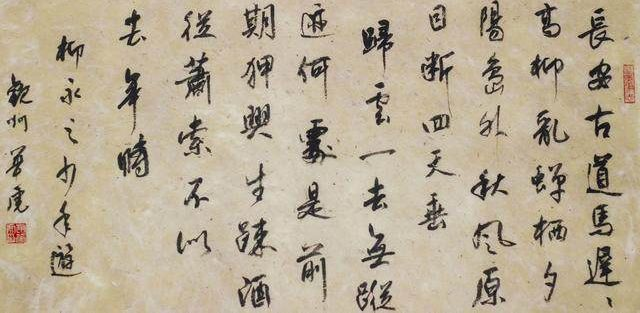 長安古道馬遲〻
高柳亂蟬栖夕
陽島外秋風原
目斷四天垂
歸雲一去無蹤
迹何處是前
期狎興生疎酒
從蕭索不似
去年時
柳永之少年遊